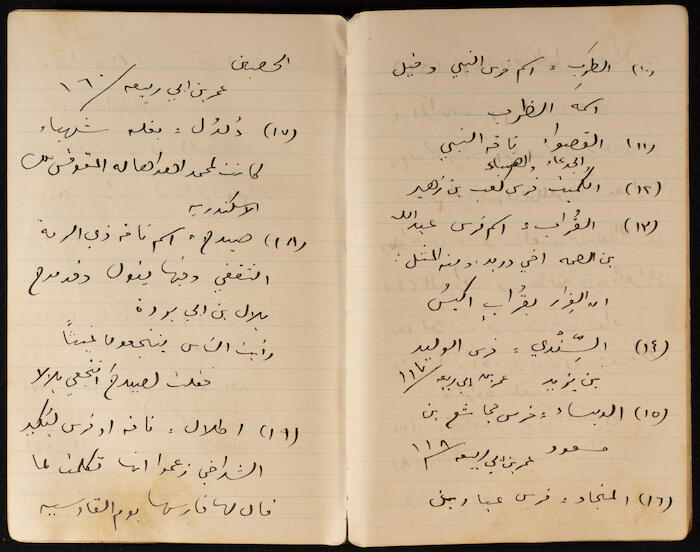 (١٠) الطرب ، اسم فرس النبي وقيل
اسمه الظرب
(١١) القصواء ناقه النبي
الجدعاء والعضباء
(١٢) الكميت فرس كعب بن زهير
(١٣) القُراب ، اسم فرس عبد الله
بن الصمه اخي دريد ومنه المثل :
ان الفرار بقُرابٍ اكيسُ
(١٤) السِّندي ، فرس الوليد
بن يزيد عمر بن ابي ربيعه / ١١٧
(١٥) ، فرس مجاشع بن
مسعود عمر بن ابي ربيعه / ١١٨
(١٦) ، فرس عباد بن
الحصين
عمر بن ابي ربيعه / ١٦٠
(١٧) دُلدُل ، بغله شهباء
كانت لمحمد اهداها له المقوقس ملك
الاسكندريه
(١٨) صيدح ، اسم ناقه ذي الرمة
وفيها يقول وقد مدح
بلال بن ابي بردة
رأيت الناس ينتجعون غيثاً
فقلت لصيدح انتجعي بلالا
(١٩) اطلال ، ناقه او فرس لبكير
الشداخي زعموا انها تكلمت لما
قال لها فارسها يوم القادسيه